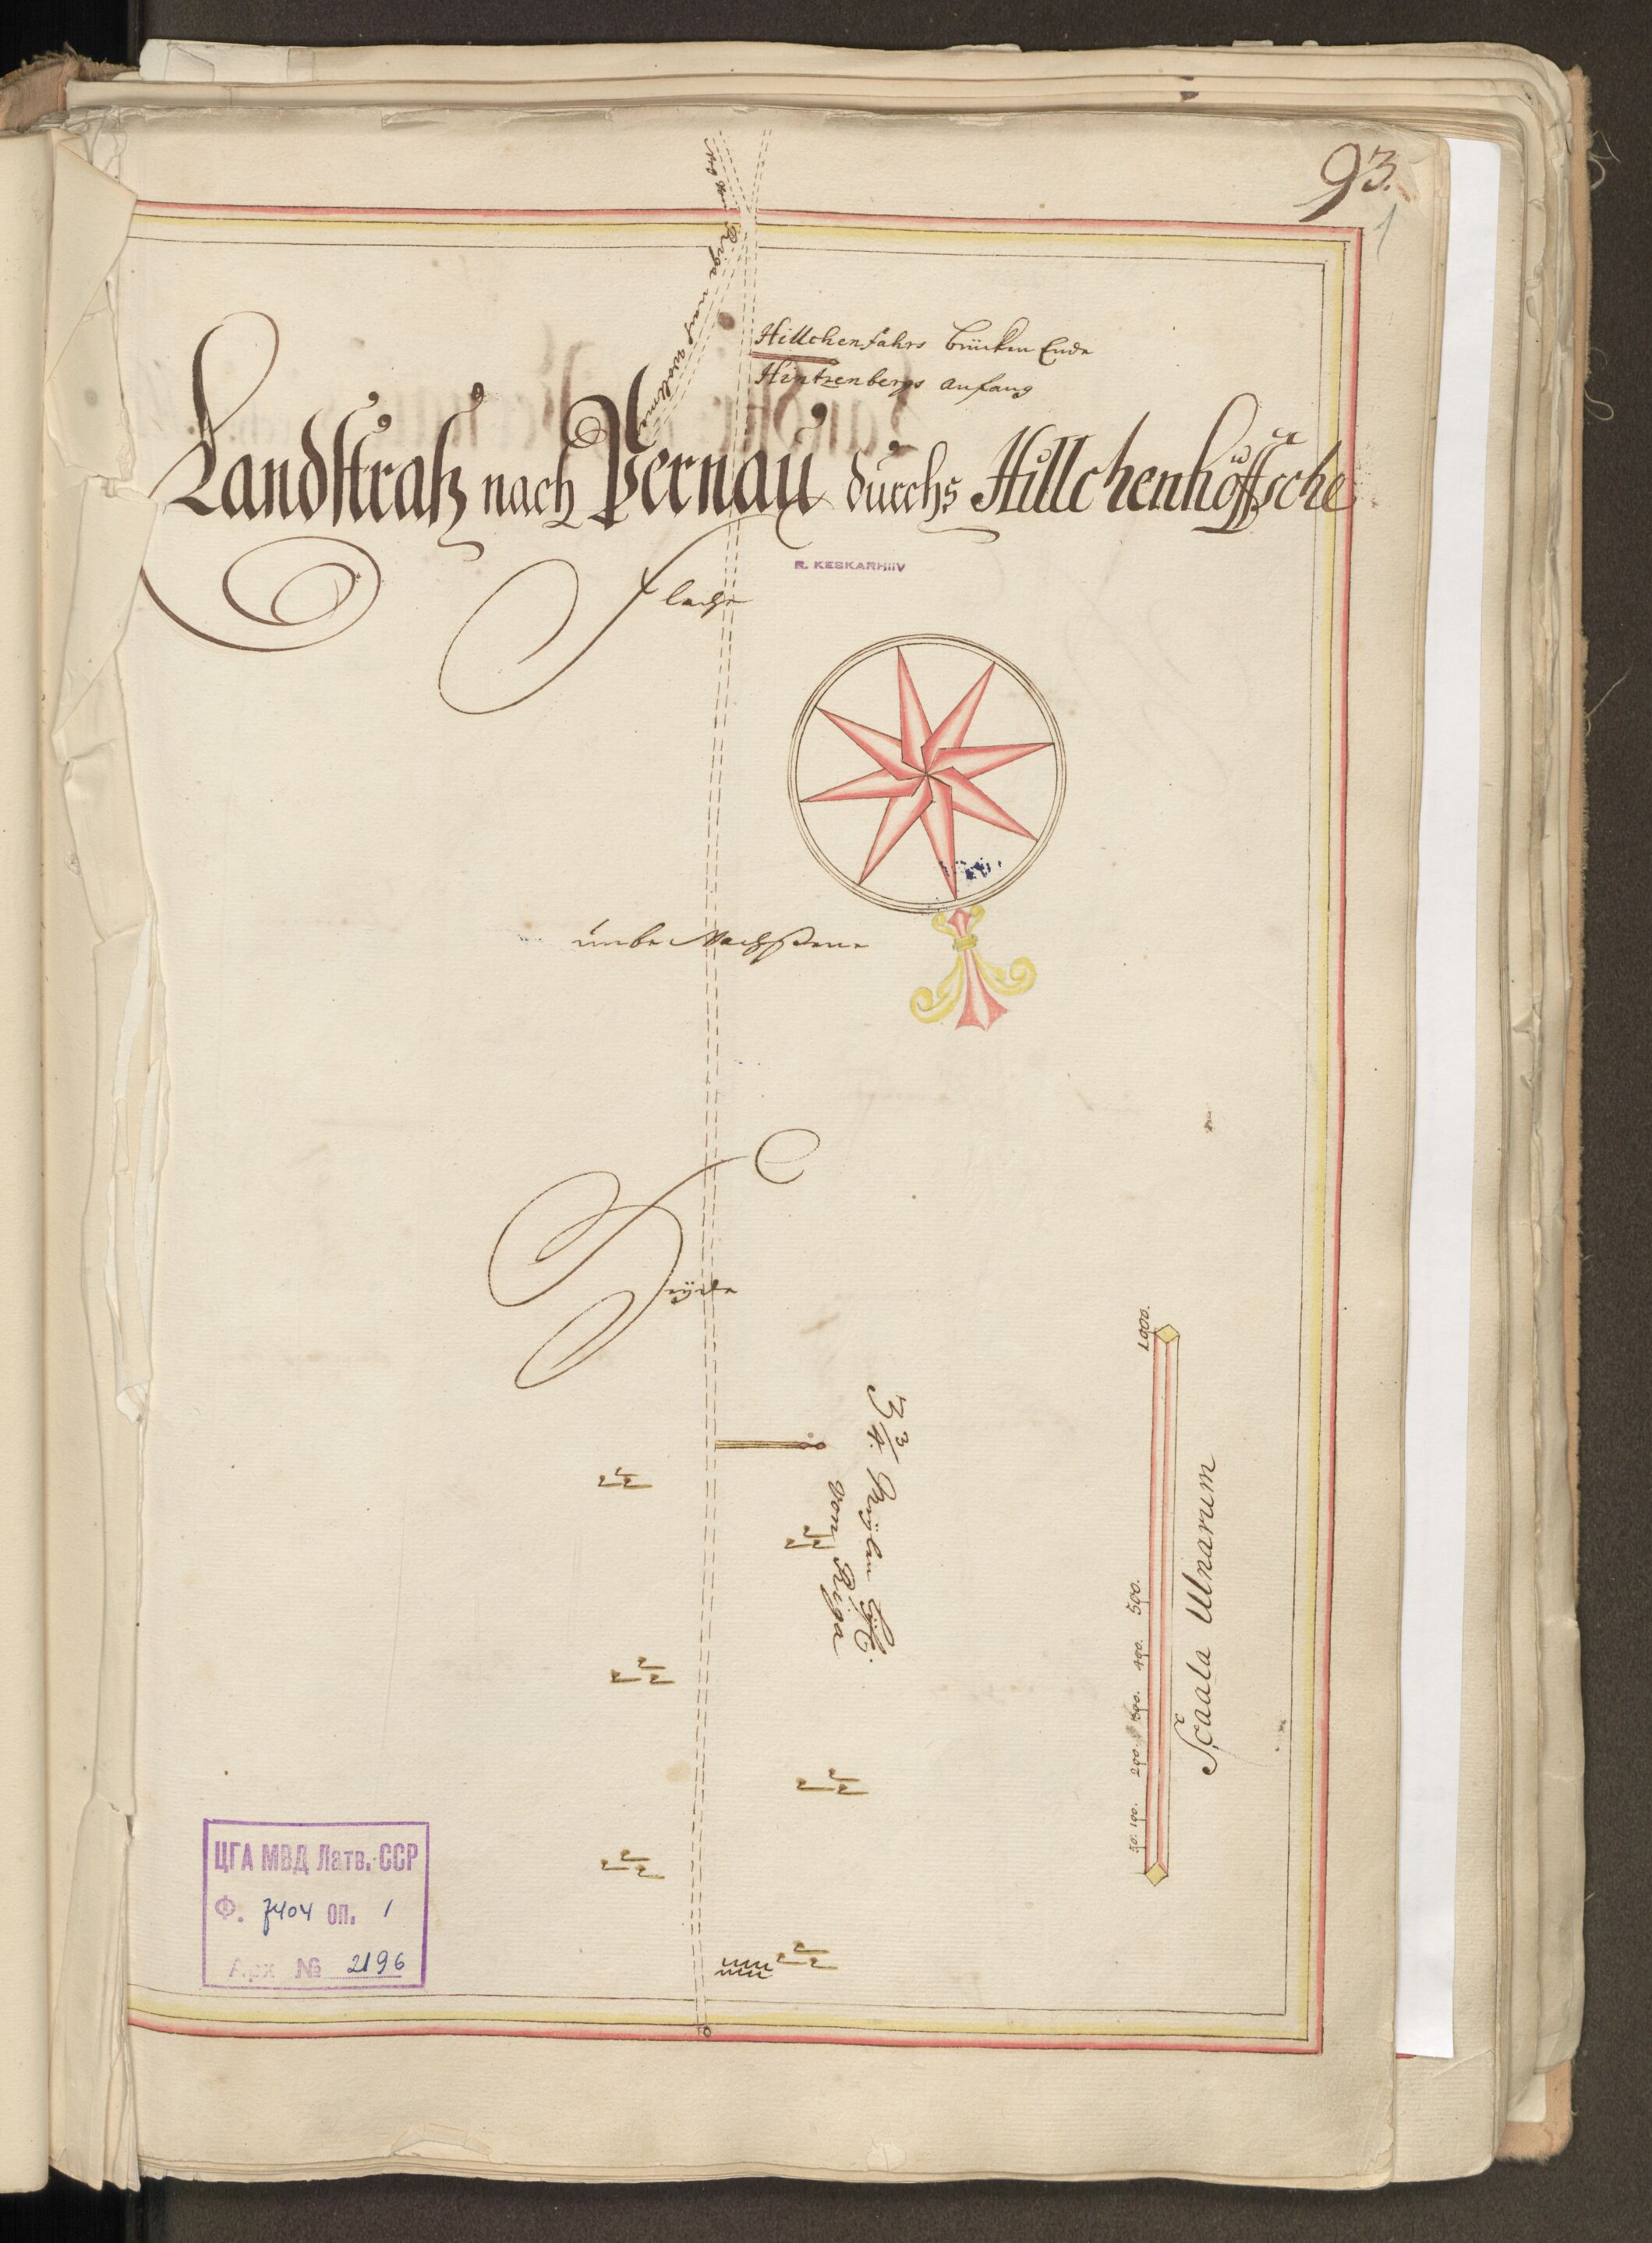 93.
1
Weg von Riga nach Wollmar
Hillchenfahrs brücken Ende
Hintzenbergs anfang
Landstraß nach Pernau durchs Hillchenhöffsche
R. KESKARHIIV
Flache
unbewachssene
Heÿde
3 3/4. Meÿlen
von Riga
1000.
500.
400.
300.
200.
100.
50.
Scaala Ulnarum
ЦГА МВД Латв. ССР
Ф. 7404 оп. 1
Арх № 2196